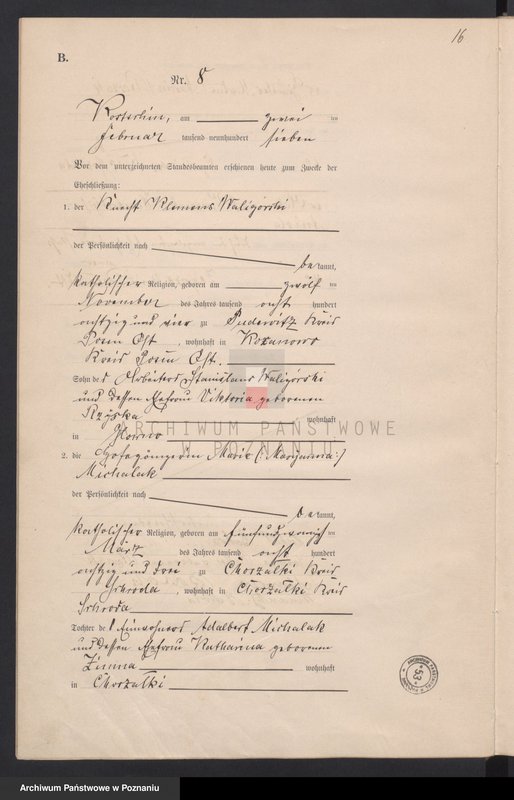 16
B.
Nr. 8
Kosterlin, am zwei ten
Februar tausend neunhundert sieben
Vor dem unterzeichneten Standesbeamten erschienen heute zum Zwecke der
Eheschließung:
1. der Knecht Klemens Waligórski
der Persönlichkeit nach
be kannt,
katholischer Religion, geboren am zwölf ten
November des Jahres tausend acht hundert
achtzig und vier zu Pudewitz Kreis
Posen Ost, wohnhaft in
Kreis Posen Ost.
Sohn des Arbeiters Stanislaus Waligórski
und dessen Ehefrau Viktoria geborenen
Rzyska wohnhaft
in Glowno
ARCHIWUM PAŃSTWOWE
W POZNANIU
2. die Hofegängerin Marie (: Maryanna :)
Michalak
der Persönlichkeit nach
be kannt,
katholischer Religion, geboren am fünfundzwanzig ten
März des Jahres tausend acht hundert
achtzig und drei zu Chorzalki Kreis
Schroda, wohnhaft in Chorzalki Kreis
Schroda
Tochter des Einwohners Adalbert Michalak
und dessen Ehefrau Katharina geborenen
Zimna wohnhaft
in Chorzalki
53
Archiwum Państwowe w Poznaniu